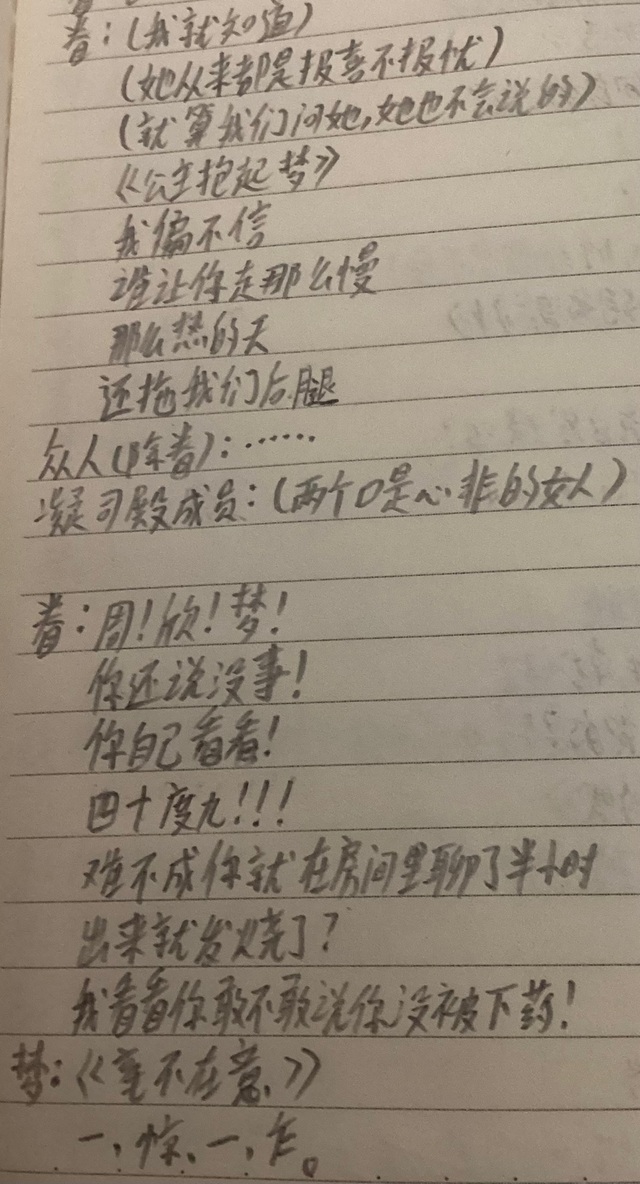 春：(我就知道)
(她从来都是报喜不报忧)
(就算我们问她，她也不会说的)
《公主抱起梦》
我偏不信
谁让你走那么慢
那么热的天
还拖我们后腿
众人(除春)：……
凝司殿成员：(两个口是心非的女人)
春：周！欣！梦！
你还说没事！
你自己看看！
四十度九！！！
难不成你就在房间里聊了半小时
出来就发烧了？
我看看你敢不敢说你没被下药！
梦：《毫不在意》
一、惊、一、乍。